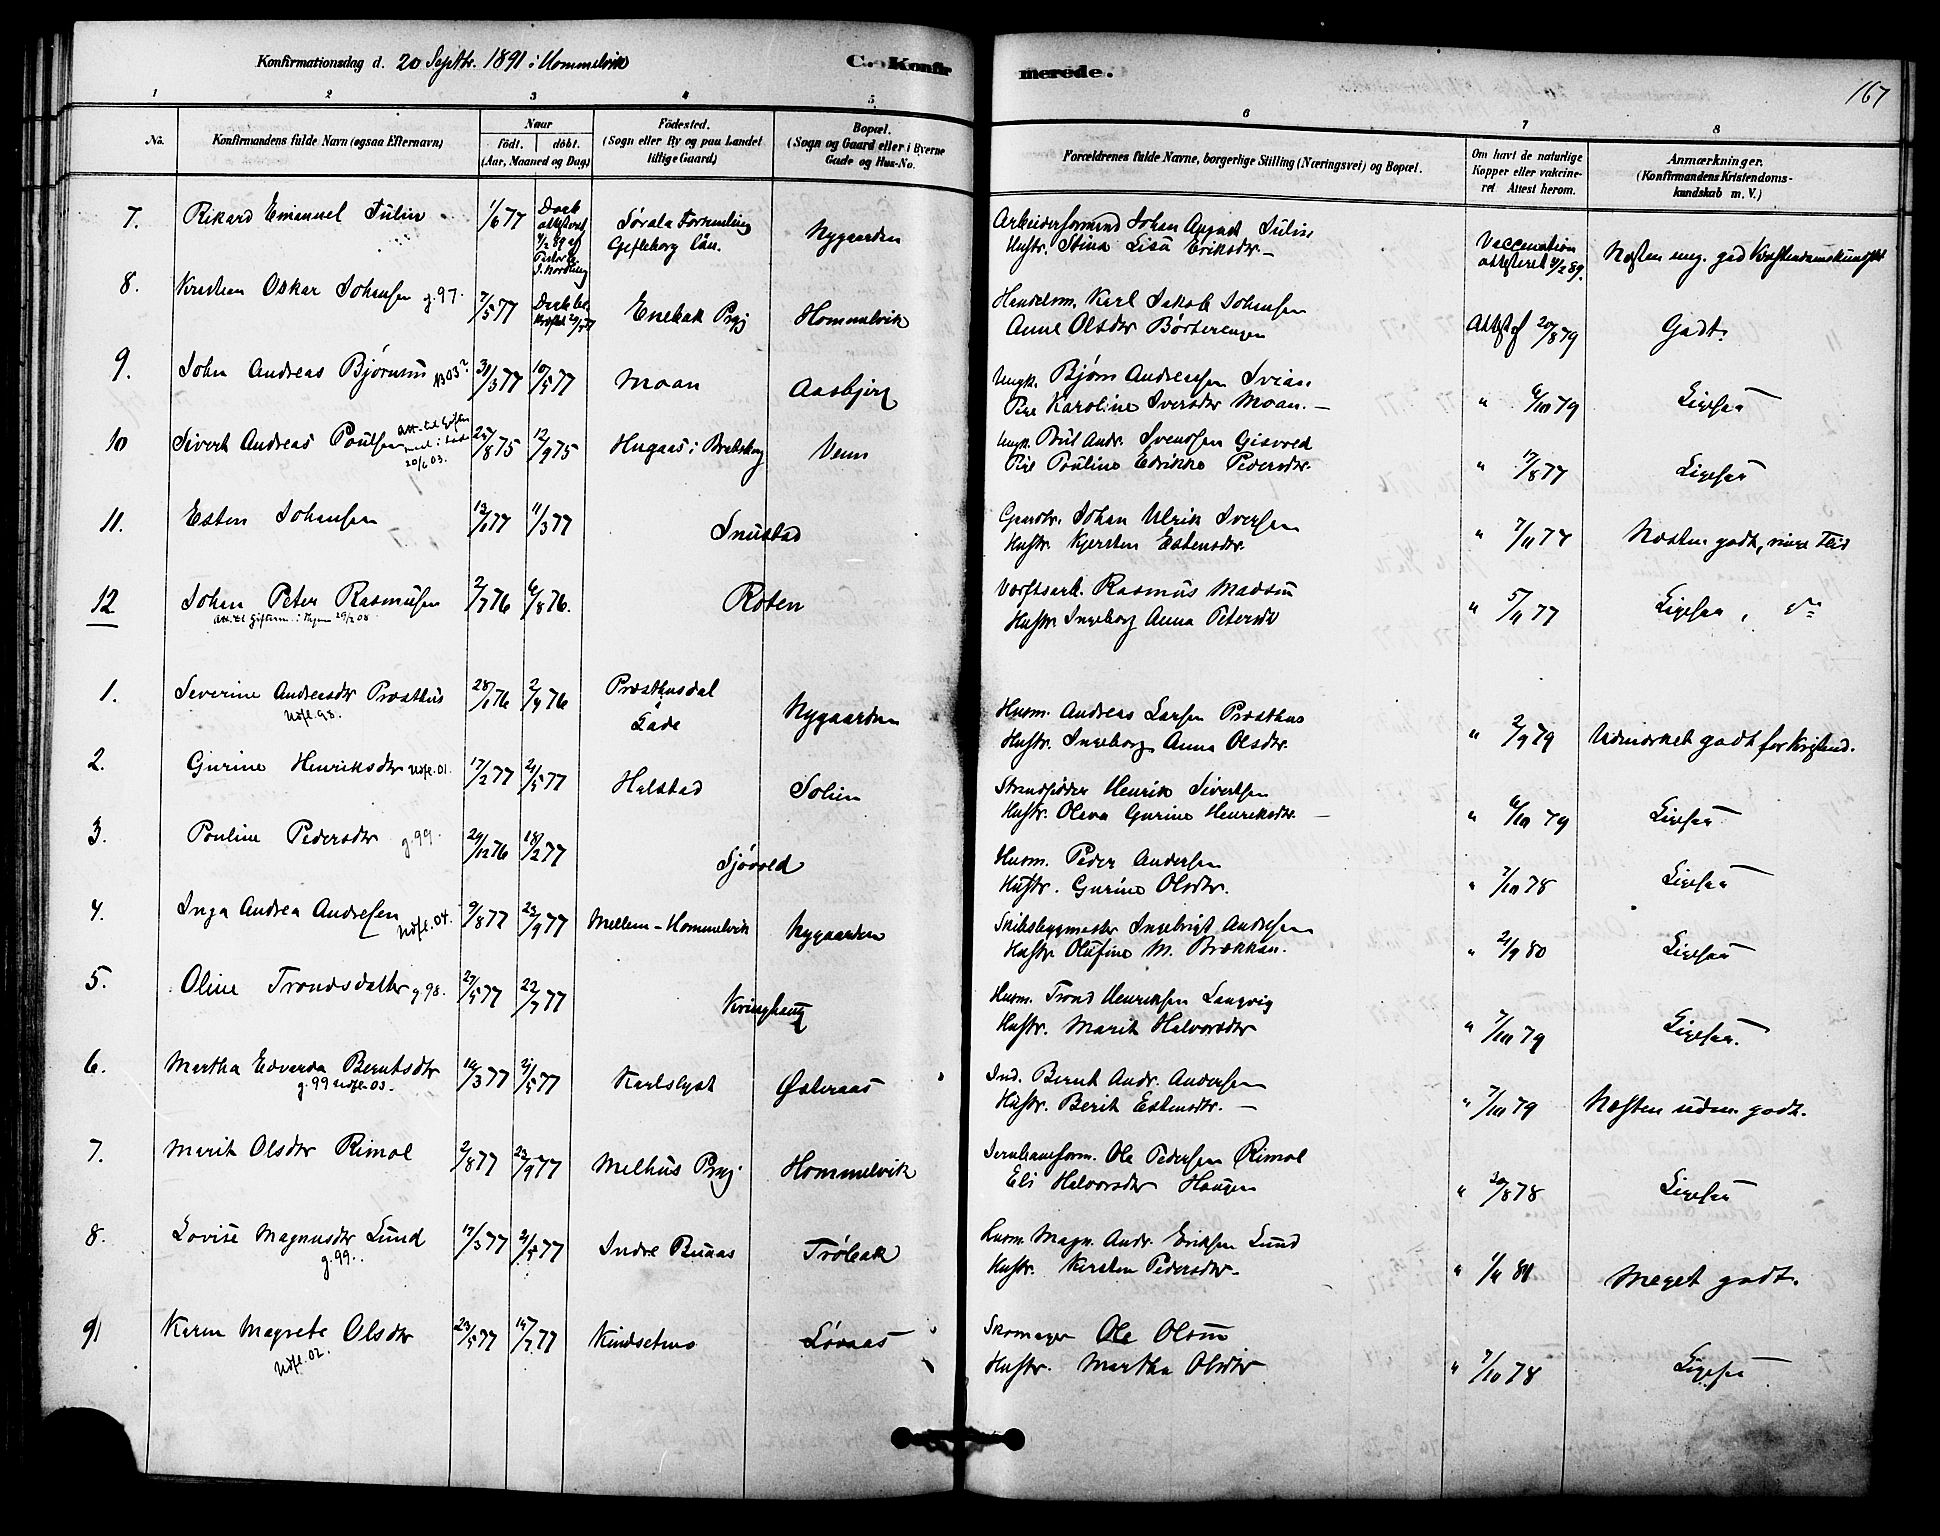 Konfirmationsdag d. 20 Septbr. 1891 i Hommelvik
C. Konfirmerede.
167
1 2 3 4 5 6 7 8
No.
Konfirmandens fulde Navn (ogsaa Efternavn)
Naar
födt. döbt.
(Aar, Maaned og Dag)
Födested.
(Sogn eller By og paa Landet tillige Gaard)
Bopæl.
(Sogn og Gaard eller i Byerne Gade og Hus-No.
Forældrenes fulde Navne, borgerlige Stilling (Næringsvei) og Bopæl.
Om havt de naturlige Kopper eller vakcineret. Attest herom.
Anmærkninger.
(Konfirmandens Kristendomskundskab m. V.)
7. Rikard Emanuel Julin 1/6 77 Daab attesteret 4/2 89 af Pastor J. Nordling Gefleborg Län. Nygaarden
Arbeidsformand Johan August Julin
Hustr. Stina Lisa Eriksdr. –
Vaccination attesteret 4/2 89. Næsten meg. god Kristendomskundsk
8. Kristian Oskar Johansen g. 97. 7/5 77 Enebak Prgj Hommelvik
Handelsm. Karl Jakob Johansen
Anne Olsdr Börterengen
Attest af 20/8 79 Godt.
9. John Andreas Bjørnsen 31/3 77 10/5 77 Moan Aasbjerg
Ungk. Bjørn Andreassen Svian
Pige Karoline Iversdr Moan. –
" 6/10 79 Ligesaa
10 Sivert Andreas Poulsen 20/6 03. 25/8 75 12/9 75 Hugaas i Bratsberg Venn
Ungk. Pål Andr. Svendsen Gisvold
Pige Pauline Edrikke Pedersdr.
" 17/8 77 Ligesaa
11. Esten Johansen 13/1 77 11/3 77 Snustad
Gaardbr. Johan Ulrik Iversen
Hustr. Kjersten Estensdr.
" 7/11 77 Næsten godt, mere Flid
12 Johan Peter Rasmussen 2/7 76 6/8 76. Roten
Att. til Gifterm. i Thjem 29/2 08
Værftsarb. Rasmus Madsen
Hustr Ingeborg Anna Petersdr
" 5/11 77 Ligesaa,
1. Severine Andreasdr Præsthus 28/1 76 2/4 76 Præsthusdal i Lade Nygaarden
Udfl. 98.
Husm. Andreas Larsen Præsthus
Hustr. Ingeborg Anna Olsdr.
" 2/9 79 Udmærket godt for Kristend.
2. Gurine Henriksdr Udfl. 01. 17/2 77 21/5 77 Halstad Solien
Strandsidder Henrik Sivertsen
Hustr. Oleva Gurine Henriksdr. –
" 6/10 79 Ligesaa
3. Pouline Pedersdr g. 99. 29/12 76 18/2 77 Sjøvold
Husm. Peder Andersen
Hustr. Gurine Olsdr.
" 7/10 78 Ligesaa
4. Inga Andrea Andresen Udfl. 04. 9/8 77 23/9 77 Mellem-Hommelvik Nygaarden
Skibsbygmester Ingebrigt Andresen
Hustr Olufine M. Brækkan.
" 21/9 80 Ligesaa
5. Oline Trondsdatter g 98. 27/5 77 22/7 77 Kringhaug
Husm. Trond Henriksen Langvig
Hustr. Marit Halvorsdr
" 7/10 79 Ligesaa.
6. Martha Edvarda Berntsdtr 10/3 77 21/5 77 Karlslyst Østeraas
g. 99 Udfl. 03.
Ind. Bernt Andr. Andersen
Hustr. Berit Estensdtr. –
" 7/10 79 Næsten udm. godt.
7. Marit Olsdr Rimol 2/8 77 23/9 77 Melhus Prgj Hommelvik
Jernbaneform. Ole Pedersen Rimol
Eli Halvorsdr Haugen
" 20/8 78 Ligesaa
8. Lovise Magnusdr Lund 17/3 77 21/5 77 Indre Buaas Trøbak
g. 99.
Husm. Magn. Andr. Eriksen Lund
Hustr. Kersten Pedersdr.
" Meget godt.
9 Karen Magrete Olsdr 23/5 77 15/7 77 Kindsetmo Løvaas
Udfl. 02.
Skomager Ole Olsen
Hustr. Martha Olsdr
" 7/10 78 Ligesaa